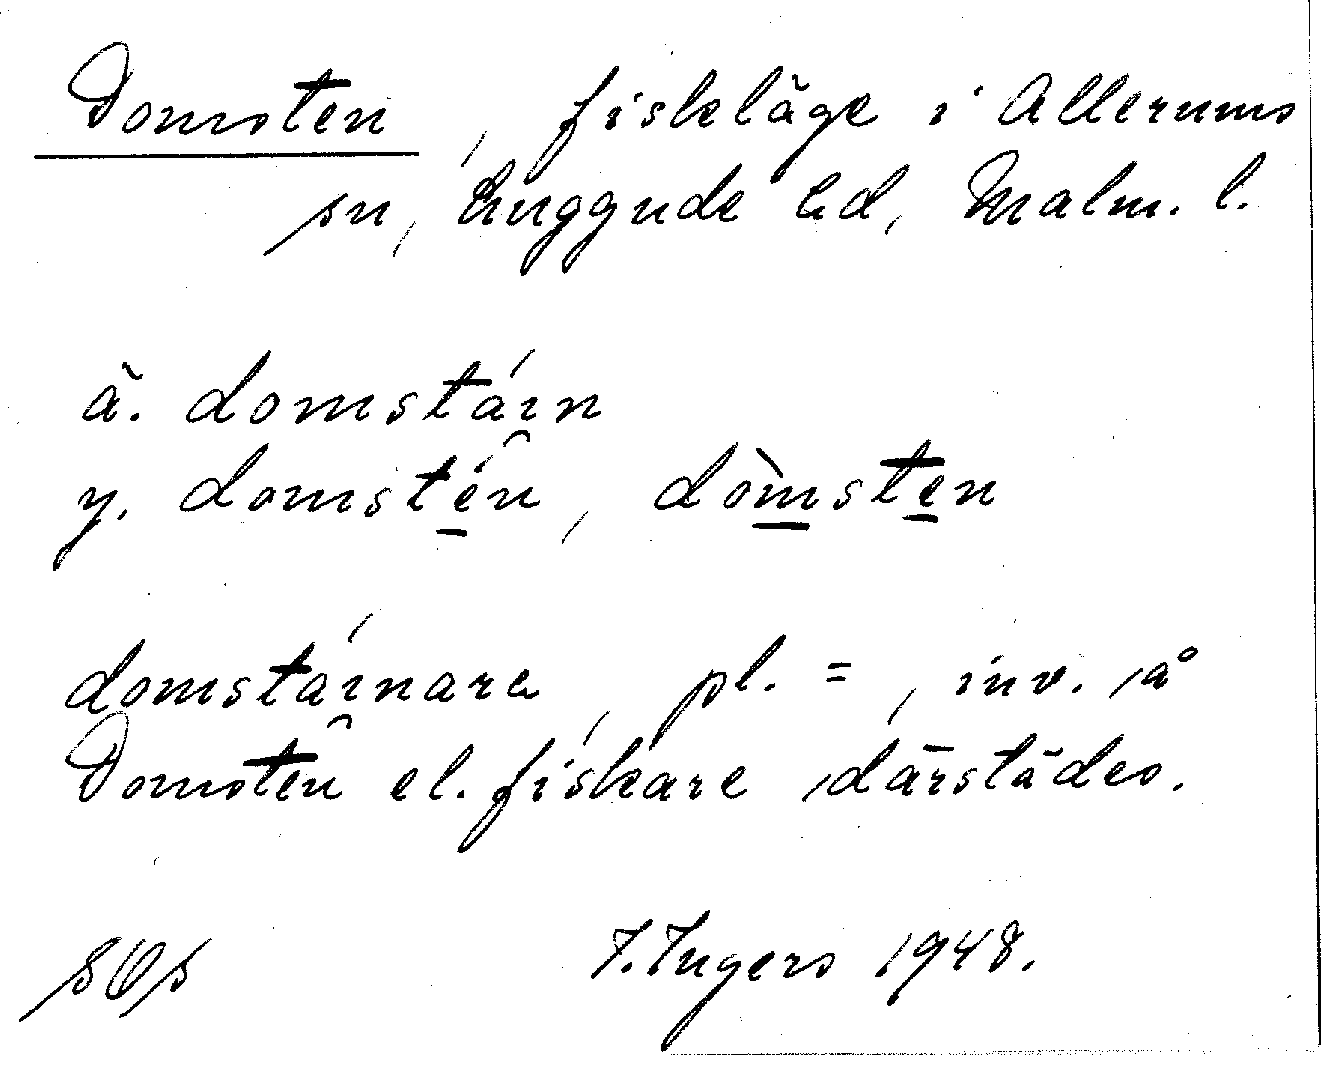 Domsten, fiskeläge i Allerums
sn, Luggude hd, Malm. l.
ä. domstáin
y. domstén, dòmsten
domstáinare, pl. =, inv. å
Domsten el. fiskare därstädes.
SOS I. Ingers 1948.